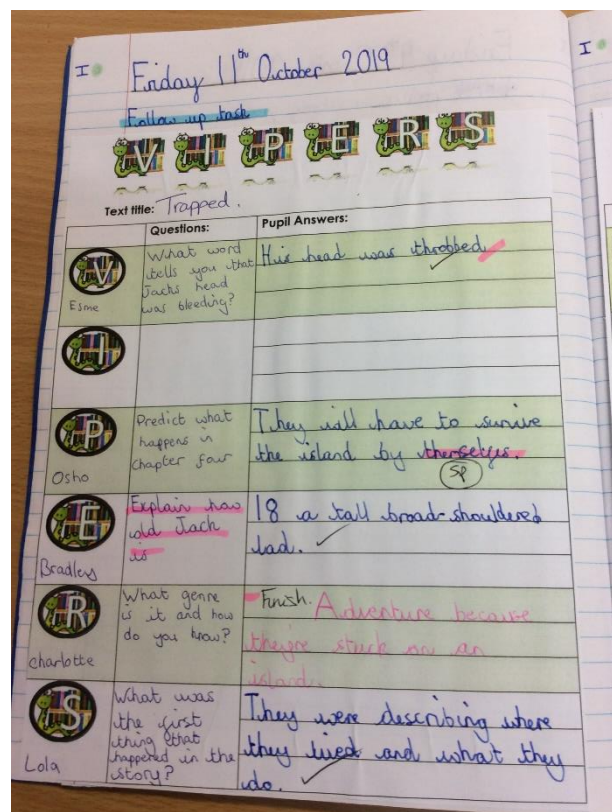 I
Friday 11th October 2019
Follow up task
V I P E R S
Text title: Trapped.
Questions: Pupil Answers:
V
Esme
What word
tells you that
Jacks head
was bleeding?
His head was throbbed
I
P
Osho
Predict what
happens in
Chapter four
They will have to survive
the island by themselves.
Sp
E
Bradley
Explain how
old Jack
is
18 a tall broad-shouldered
lad.
R
charlotte
What genre
is it and how
do you know?
Finish. Adventure because
they're stuck on an
island.
S
Lola
What was
the first
thing that
happened in the
story?
They were describing where
they lived and what they
do.
I